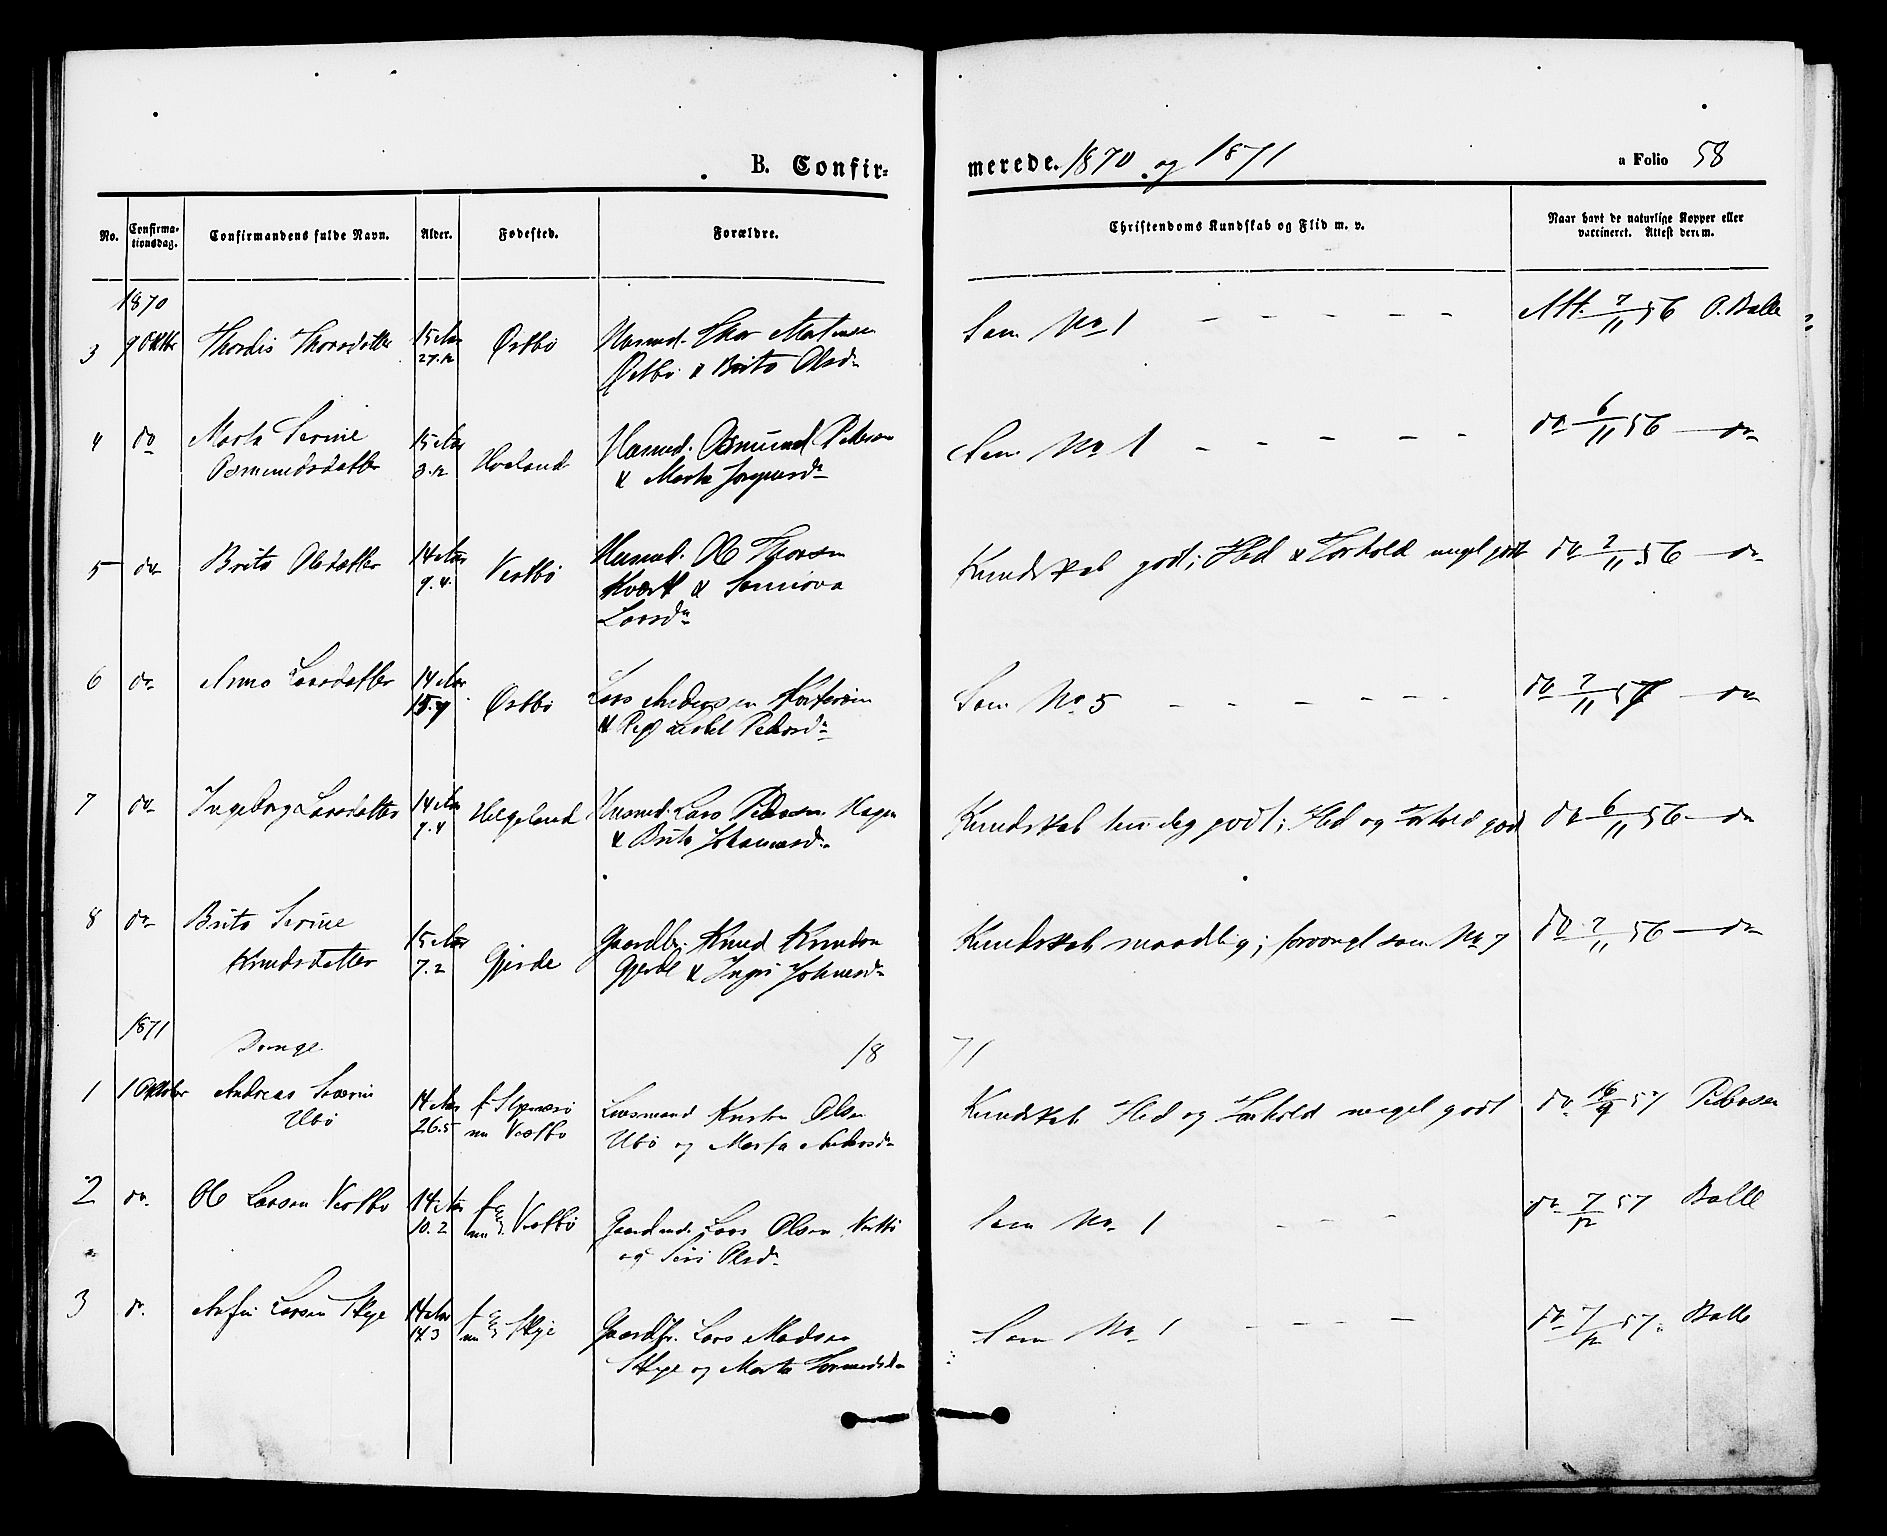 B. Confir-
merede. 1870 og 1871
a Folio 58
No.
Confirma-
tionsdag.
Confirmandens fulde Navn.
Alder.
Fødested.
Forældre.
Christendoms Kundskab og Flid m. v.
Naar havt de naturlige Kopper eller
vaccineret. Attest derom.
1870
3 9 Oktbr Thordis Thorsdatter 15 Aar Østbø Husmd. Thor
27.12 Østbø & Brita Olsdr
Som No 1 - - - - - Att. 7/11 56 O. Balle
4 do Marta Serine 15 Aar Husmd. Osmund Peterson
Osmundsdatter 3.12 Hveland & Marta
Som No 1 - - - - - do 6/11 56 — do
5 do Brita Olsdatter 14 Aar Vestbø Husmd. Ole Thorsen
9.4 & Sunniva
Larsdr
Kundskab godt; Flid & Forhold meget godt do 7/11 56 — do
6 do Anna Larsdatter 14 Aar Lars Andersen
15.9 Østbø & Pige Lisbet Pedersdr
Som No 5 - - - - - - do 7/11 57 — do
7 do Ingeborg Larsdatter 14 Aar Helgeland Husmd. Lars Pedersen Hagen
9.4 & Brita Johannesdr
Kundskab temelig godt; Flid og Forhold godt do 6/11 56 — do
8 do Brita Serine 15 Aar Gaardbr. Knud Knudsen
Knudsdatter 7.2 Gjerde Gjerde & Ingri Johannesdr
Kundskab maadelig; forøvrigt som No 7 do 7/11 56 — do
1871
Drenge 18 71
1 1 Oktober Andreas Severin 14 Aar f. nu Vestbø
Ubø 26.5 Kristen Olsen
Ubø og Marta Andersdr
Kundskab Flid og Forhold meget godt do 16/9 57 Pedersen
2 do. Ole Larsen Vestbø 14 Aar f. og nu Vestbø
10.2 Gaardmd. Lars Olsen Vestbø
og Siri Olsdr
Som No 1 - - - do 7/12 57 Balle
3 do. Larsen Skeje 14 Aar f. og nu Skeje
14.3 Gaardbr. Lars Madsen
Skeje og Marta
Som No 1 - - - - do 7/12 57. Balle